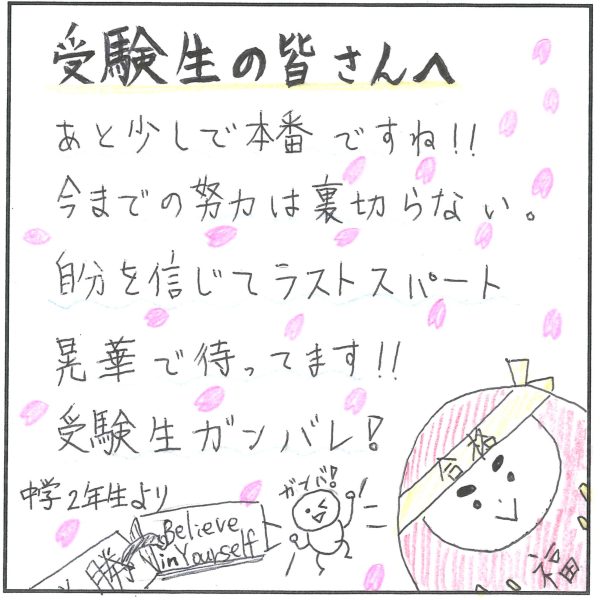 受験生の皆さんへ
あと少しで本番ですね!!
今までの努力は裏切らない。
自分を信じてラストスパート
晃華で待ってます!!
受験生ガンバレ!
中学2年生より
ガンバ!
Believe
in Yourself
合格
勝
福